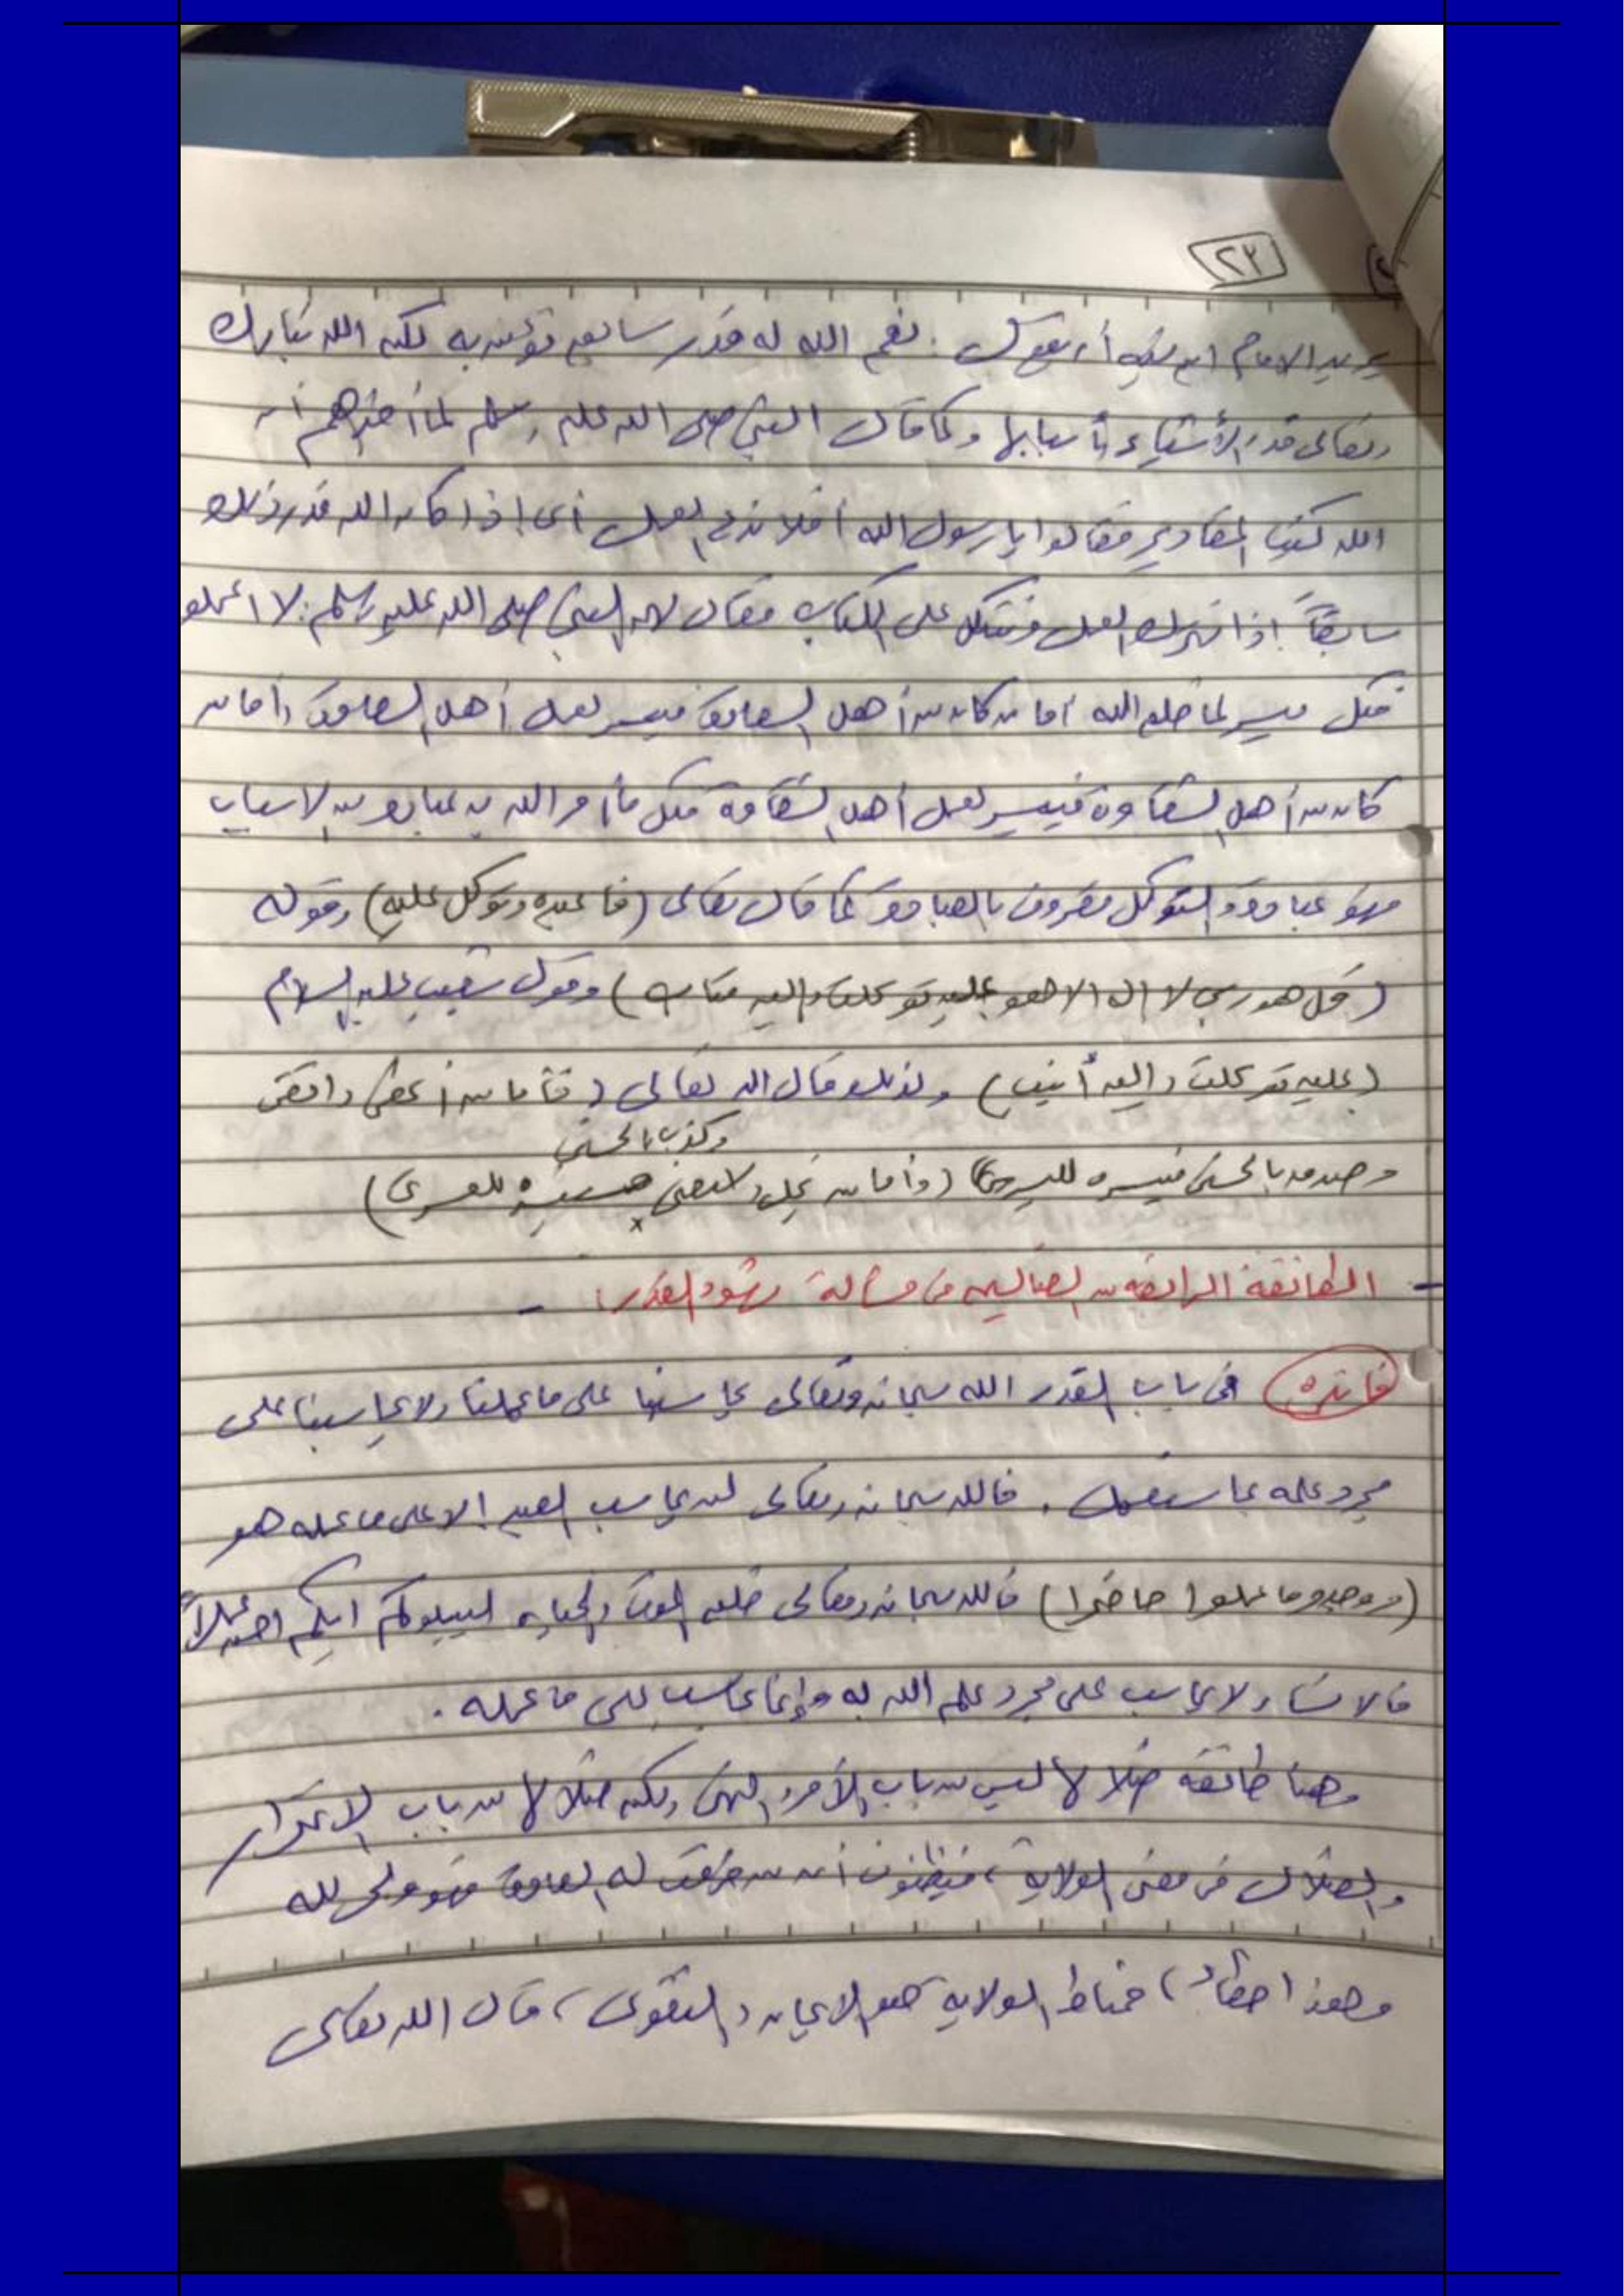 ٢٣
يريد الامام ابن تيميه أن يقول : نعم الله له قدر سابق نؤمن به لكن الله تبارك
وتعالى قدر الأشياء بأسبابها وكما قال النبي صلى الله عليه وسلم لما أخبرهم أن
الله كتب المقادير فقالوا يا رسول الله أفلا ندع العمل أى إذا كان الله قدر ذلك
سابقاً إذا نترك العمل ونتكل على الكتاب فقال لهم النبي صلى الله عليه وسلم : لا اعملو
فكل ميسر لما خلق الله أما من كان من أهل السعادة فييسر لعمل أهل السعادة وأما من
كان من أهل الشقاوة فييسر لعمل أهل الشقاوة فكل ما أمر الله به عباده من الاسباب
فهو عبادة والتوكل مقرون بالعبادة كما قال تعالى (فاعبده وتوكل عليه) وقوله
(قل هو ربي لا اله الا هو عليه توكلت واليه متاب) وقول شعيب عليه السلام
(عليه توكلت واليه أنيب) ولذلك قال الله تعالى (فأما من أعطى واتقى
وكذب بالحسنى
وصدق بالحسنى فنيسره لليسرى) (وأما من بخل واستغنى فسنيسره للعسرى)
- الطائفة الرابعة من الضالين في مسألة شهود القدر : -
فائدة في باب القدر الله سبحانه وتعالى يحاسبنا على ما عملنا ولا يحاسبنا على
مجرد علمه بما سنفعل . فالله سبحانه وتعالى لن يحاسب العبد إلا على ما عمله هو
(ووجدوا ما عملوا حاضرا) فالله سبحانه وتعالى خلق الموت والحياه ليبلوكم ايكم احسن عملاً
فالانسان لا يحاسب على مجرد علم الله به وإنما يحاسب على ما عمله .
وهنا طائفة ضلالها ليس من باب الأمر والنهى ولكن ضلالها من باب الاغترار
والضلال في معنى الولاية ، فيظنون أن من خرقت له العادة فهو ولى لله
وهذا خطأ ، فمناط الولايه هو الايمان والتقوى ، قال الله تعالى